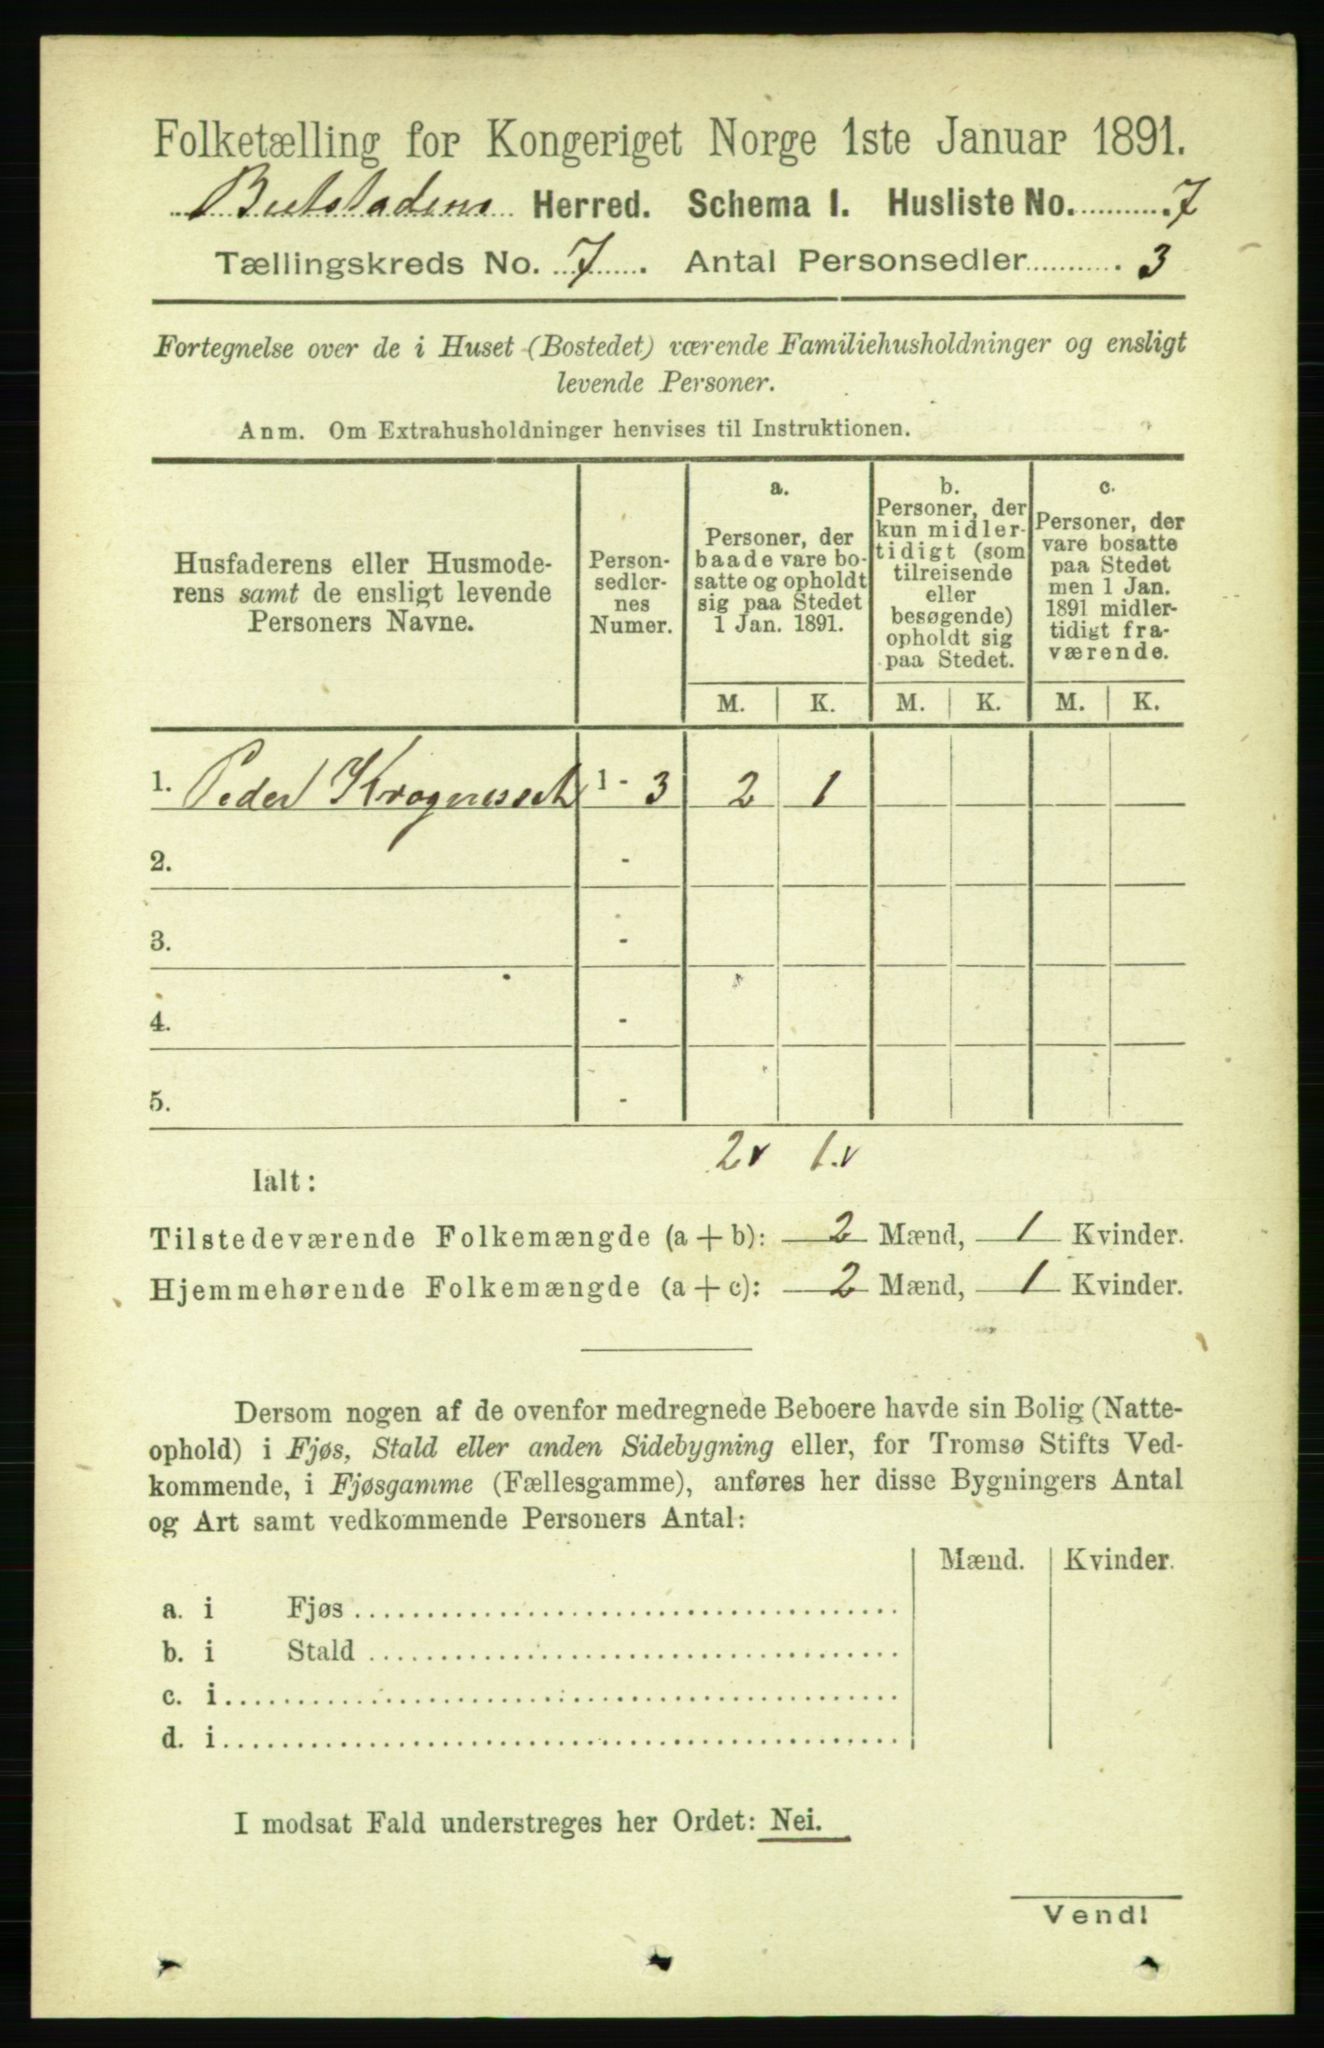 Folketælling for Kongeriget Norge 1ste Januar 1891.
Beitstadens Herred. Schema I. Husliste No. 7
Tællingskreds No. 7. Antal Personsedler 3
Fortegnelse over de i Huset (Bostedet) værende Familiehusholdninger og ensligt
levende Personer.
Anm. Om Extrahusholdninger henvises til Instruktionen.
Husfaderens eller Husmode-
rens samt de ensligt levende
Personers Navne.
Person-
sedler-
nes
Numer.
a.
Personer, der
baade vare bo-
satte og opholdt
sig paa Stedet
1 Jan. 1891.
b.
Personer, der
kun midler-
tidigt (som
tilreisende
eller
besøgende)
opholdt sig
paa Stedet.
c.
Personer, der
vare bosatte
paa Stedet
men 1 Jan.
1891 midler-
tidigt fra-
værende.
M. K. M. K. M. K.
1. Peder 1 - 3 2 1
2. -
3. -
4. -
5. -
2v 1.v
Ialt:
Tilstedeværende Folkemængde (a + b): 2 Mænd, 1 Kvinder.
Hjemmehørende Folkemængde (a + c): 2 Mænd, 1 Kvinder.
Dersom nogen af de ovenfor medregnede Beboere havde sin Bolig (Natte-
ophold) i Fjøs, Stald eller anden Sidebygning eller, for Tromsø Stifts Ved-
kommende, i Fjøsgamme (Fællesgamme), anføres her disse Bygningers Antal
og Art samt vedkommende Personers Antal:
Mænd. Kvinder.
a. i Fjøs
b. i Stald
c. i
d. i
I modsat Fald understreges her Ordet: Nei.
Vend!